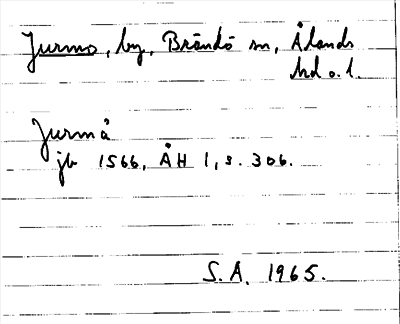 Jurmo, by, Brändö sn, Ålands
hd o. l.
Jurmå
jb 1566, ÅH 1, s. 306.
S. A. 1965.